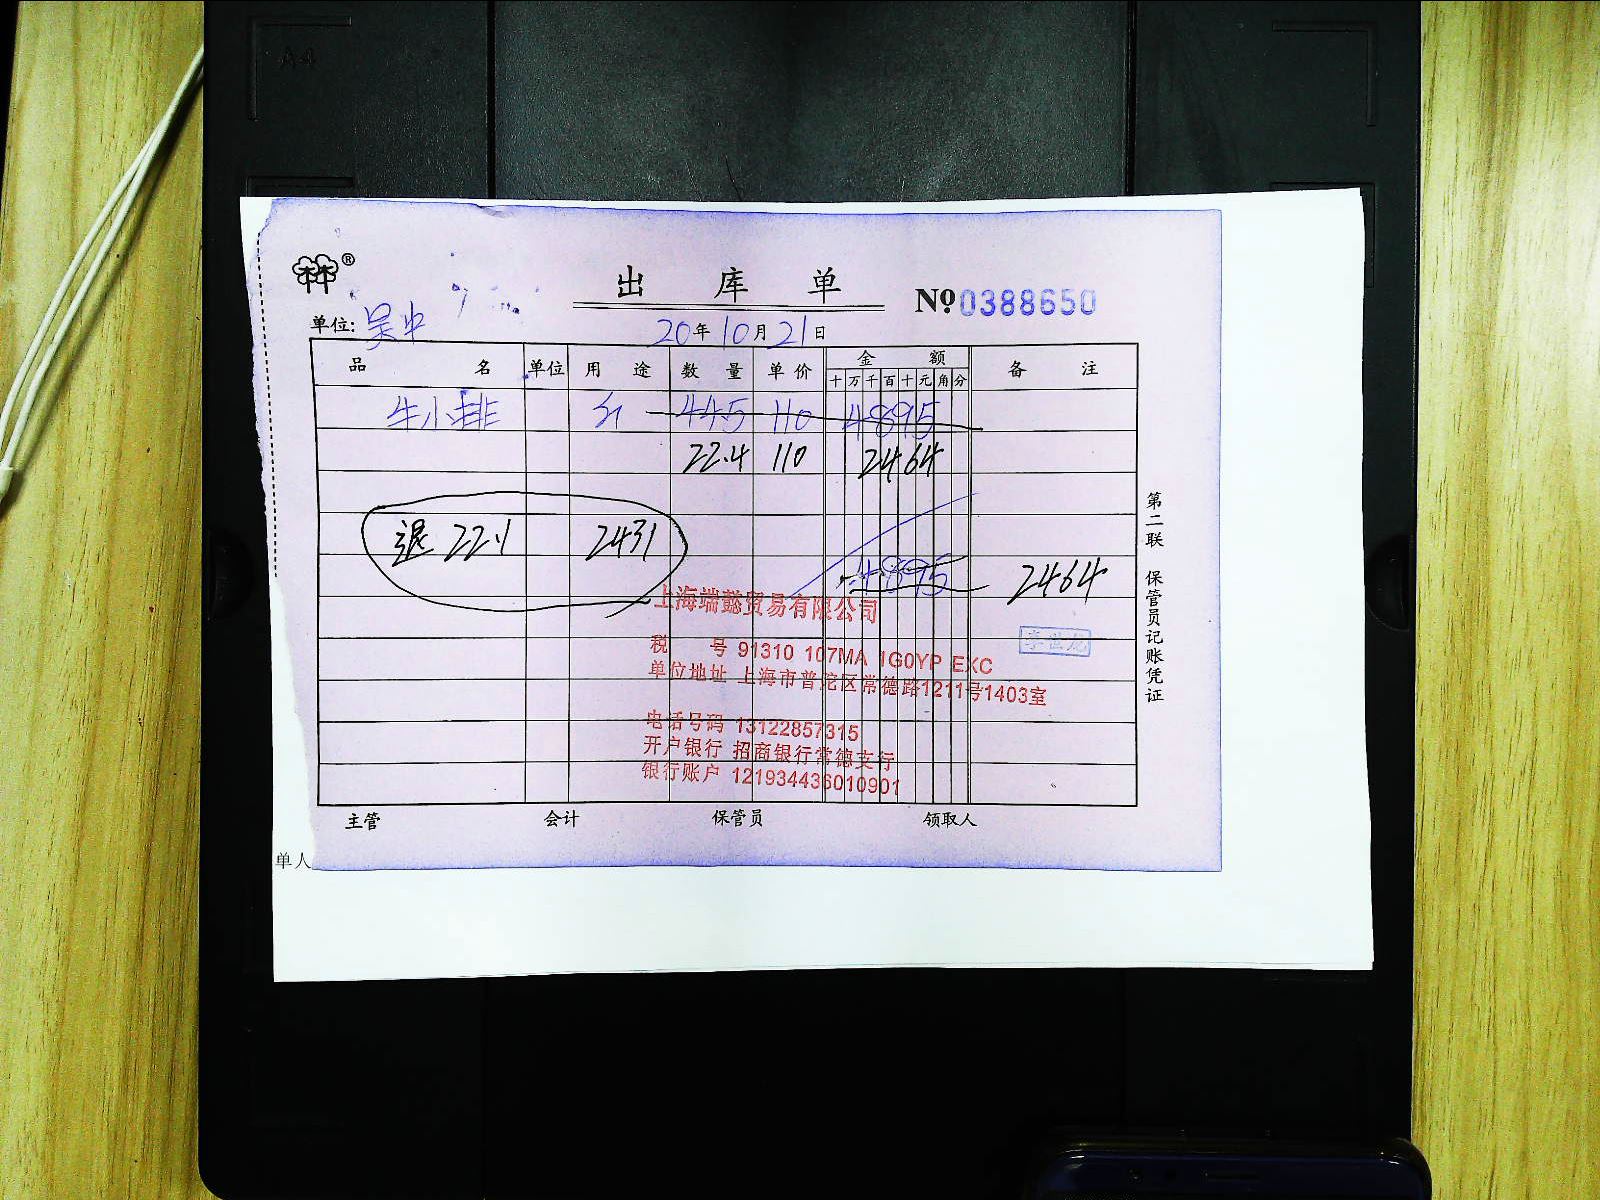 A4
®
出库单
№0388650
单位: 吴中
20年10月21日
品名 单位 用途 数量 单价 金额 备注
十万千百十元角分
牛小排 44.5 110 4895
22.4 110 2464
退 22.1 2431
4895 2464
上海端懿贸易有限公司
税 号 91310 107MA 1G0YP EXC
李世龙
单位地址 上海市普陀区常德路1211号1403室
电话号码 13122857315
开户银行 招商银行常德支行
银行账户 121934436010901
主管 会计 保管员 领取人
单人
第二联 保管员记账凭证